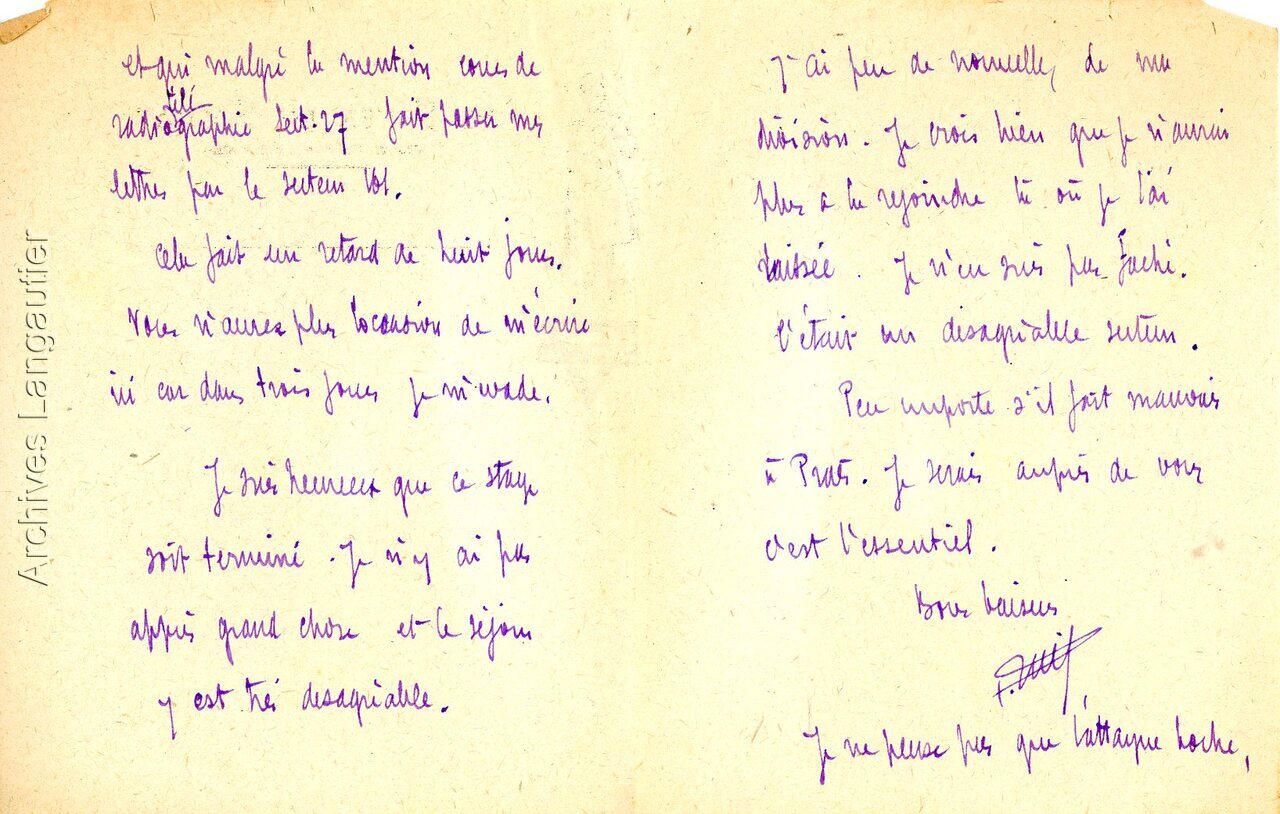 et qui malgré la mention cours de
télé
radiographie Sect. 27 fait passer mes
lettres par le secteur
Cela fait un retard de huit jours.
Vous n'aurez plus l'occasion de m'écrire
ici car dans trois jours je m'évade.
Je suis heureux que ce stage
soit terminé. Je n'y ai pas
appris grand chose et le séjour
y est très desagréable.
J'ai peu de nouvelles de ma
division. Je crois bien que je n'aurai
plus a la rejoindre là où je l'ai
laissée. Je n'en suis pas faché.
C'était un desagréable secteur.
Peu importe s'il fait mauvais
à Prats. Je serais auprès de vous
c'est l'essentiel.
Bons baisers
Je ne pense pas que l'attaque boche,
Archives Langautier